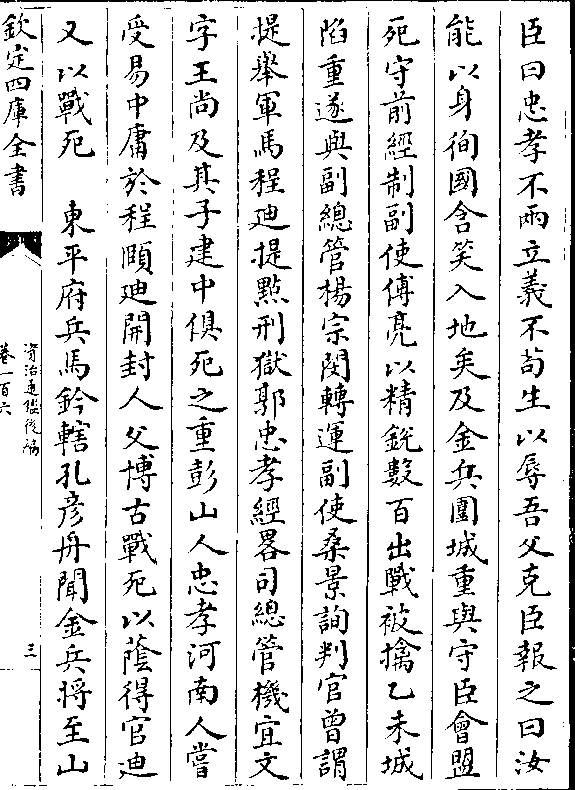 臣曰忠孝不兩立義不茍生以辱吾父克臣報之曰汝
能以身徇國含笑入地矣及金兵圍城重與守臣會盟
死守前經制副使傅亮以精銳數百出戰被擒乙未城
陷重遂與副總管楊宗閔轉運副使桑景詢判官曾謂
提舉軍馬程迪提點刑獄郭忠孝經畧司總管機宜文
字王尚及其子建中俱死之重彭山人忠孝河南人嘗
受易中庸於程頤迪開封人父博古戰死以蔭得官迪
又以戰死　東平府兵馬鈐轄孔彦舟聞金兵將至山
欽定四庫全書
資治通鑑後編
卷一百六
三